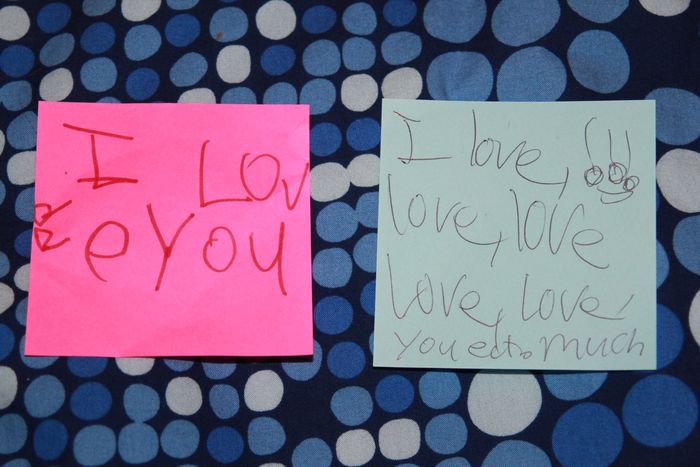 I Lov
e you
I love,
love, love
love, love,
you much